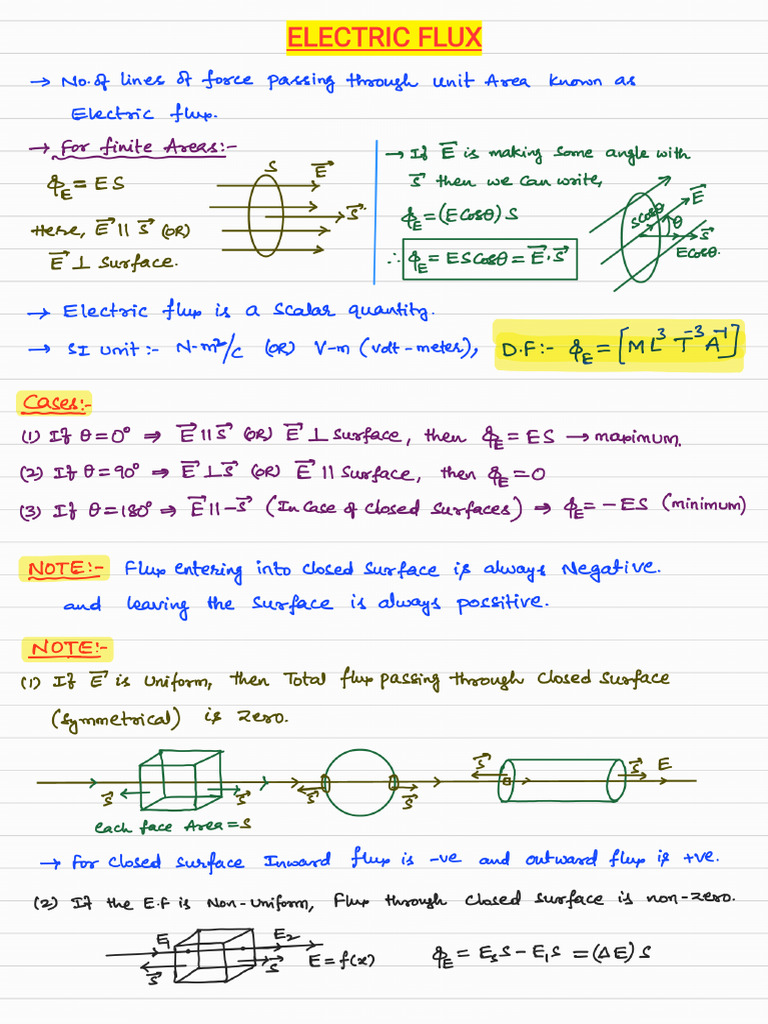 ELECTRIC FLUX
→ No. of lines of force passing through unit Area known as
Electric flux.
→ For finite Areas:-
ϕE = ES
Here, E⃗ ∥ S⃗ (OR)
E⃗ ⊥ surface.
S E⃗
S⃗
→ If E⃗ is making some angle with
S⃗ then we can write,
ϕE = (E cosθ) S
∴ ϕE = ES cosθ = E⃗·S⃗
E⃗
S cosθ θ
S⃗
E cosθ.
→ Electric flux is a scalar quantity.
→ SI unit:- N-m²/C (OR) V-m (volt-meter), D.F:- ϕE = [M L³ T⁻³ A⁻¹]
Cases:-
(1) If θ = 0° ⇒ E⃗ ∥ S⃗ (OR) E⃗ ⊥ surface, then ϕE = ES → maximum.
(2) If θ = 90° ⇒ E⃗ ⊥ S⃗ (OR) E⃗ ∥ surface, then ϕE = 0
(3) If θ = 180° ⇒ E⃗ ∥ -S⃗ (In case of closed surfaces) ⇒ ϕE = -ES (minimum)
NOTE:- Flux entering into closed surface is always Negative.
and leaving the surface is always possitive.
NOTE:-
(1) If E⃗ is Uniform, then Total flux passing through closed surface
(symmetrical) is zero.
S⃗ S⃗ S⃗ S⃗ S⃗ S⃗ E
each face Area = S
→ For closed surface Inward flux is -ve and outward flux is +ve.
(2) If the E.F is Non-uniform, Flux through closed surface is non-zero.
E₁ E₂
S⃗ S⃗ E = f(x)
ϕE = E₂S - E₁S = (ΔE) S